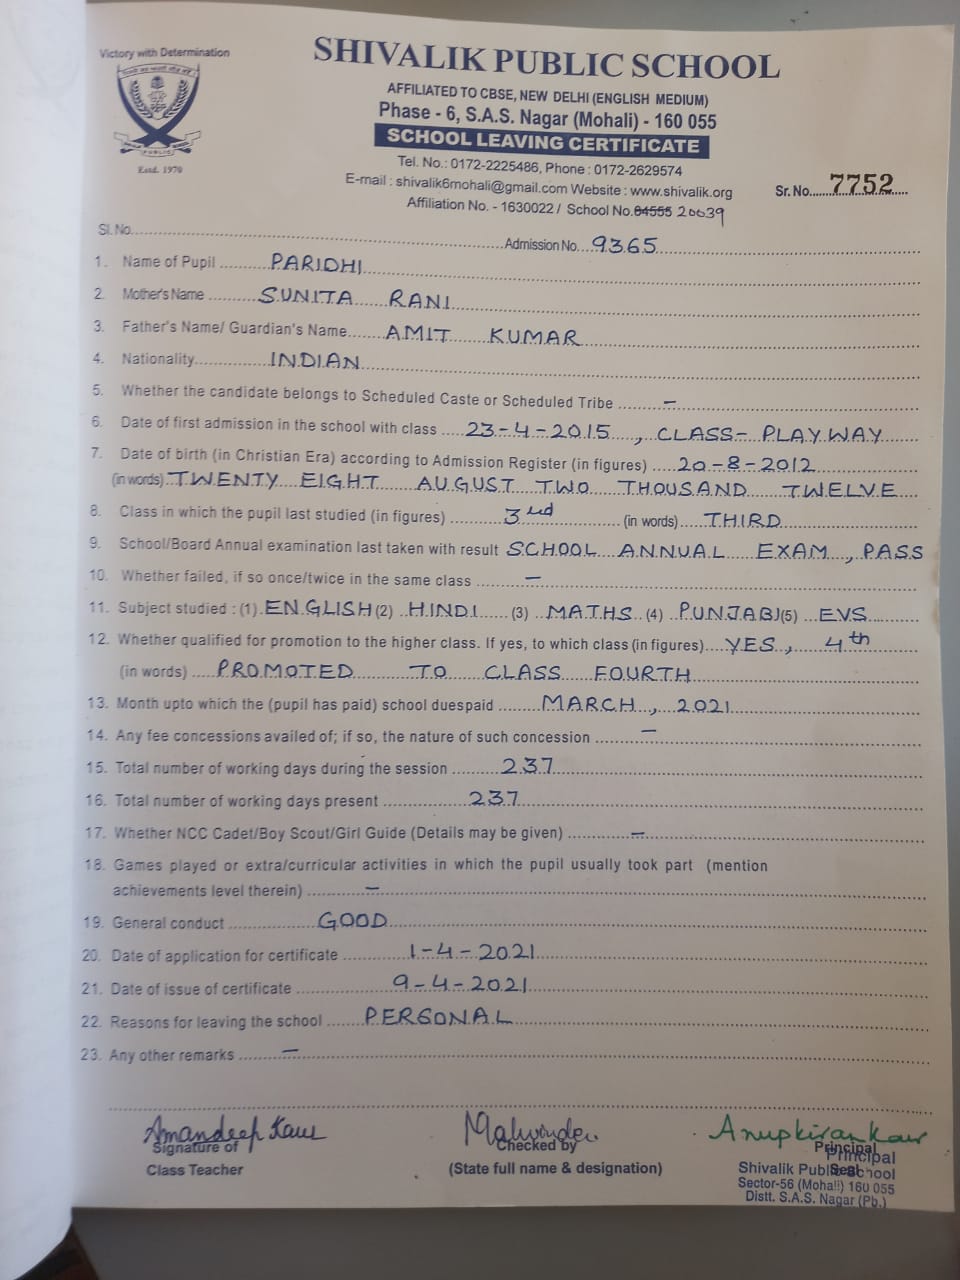 Victory with Determination
SHIVALIK PUBLIC SCHOOL
AFFILIATED TO CBSE, NEW DELHI (ENGLISH MEDIUM)
Phase - 6, S.A.S. Nagar (Mohali) - 160 055
SCHOOL LEAVING CERTIFICATE
Estd. 1970
Tel. No.: 0172-2225486, Phone : 0172-2629574
E-mail : shivalik6mohali@gmail.com Website : www.shivalik.org
Sr. No. 7752
Affiliation No. - 1630022 / School No. 04555 20039
Sl. No.
Admission No. 9365
1. Name of Pupil PARIDHI
2. Mother's Name SUNITA RANI
3. Father's Name/ Guardian's Name AMIT KUMAR
4. Nationality INDIAN
5. Whether the candidate belongs to Scheduled Caste or Scheduled Tribe –
6. Date of first admission in the school with class 23-4-2015, CLASS- PLAYWAY
7. Date of birth (in Christian Era) according to Admission Register (in figures) 20-8-2012
(in words) TWENTY EIGHT AUGUST TWO THOUSAND TWELVE
8. Class in which the pupil last studied (in figures) 3rd (in words) THIRD
9. School/Board Annual examination last taken with result SCHOOL ANNUAL EXAM, PASS
10. Whether failed, if so once/twice in the same class –
11. Subject studied : (1) ENGLISH (2) HINDI (3) MATHS (4) PUNJABI (5) EVS
12. Whether qualified for promotion to the higher class. If yes, to which class (in figures) YES, 4th
(in words) PROMOTED TO CLASS FOURTH
13. Month upto which the (pupil has paid) school duespaid MARCH, 2021
14. Any fee concessions availed of; if so, the nature of such concession –
15. Total number of working days during the session 237
16. Total number of working days present 237
17. Whether NCC Cadet/Boy Scout/Girl Guide (Details may be given) –
18. Games played or extra/curricular activities in which the pupil usually took part (mention
achievements level therein) –
19. General conduct GOOD
20. Date of application for certificate 1-4-2021
21. Date of issue of certificate 9-4-2021
22. Reasons for leaving the school PERSONAL
23. Any other remarks –
Amandeep Kaur
Anupkiran Kaur
Signature of
Class Teacher
Checked by
(State full name & designation)
Principal
Seal
Principal
Shivalik Public School
Sector-56 (Mohali) 160 055
Distt. S.A.S. Nagar (Pb.)